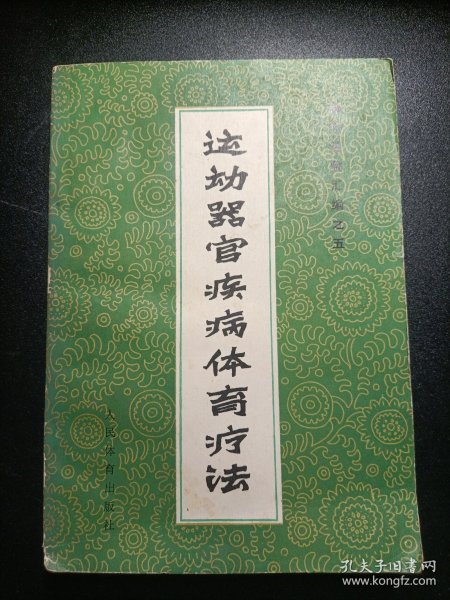 运动器官疾病体育疗法
汇编之五
人民体育出版社
孔夫子旧书网
www.kongfz.com